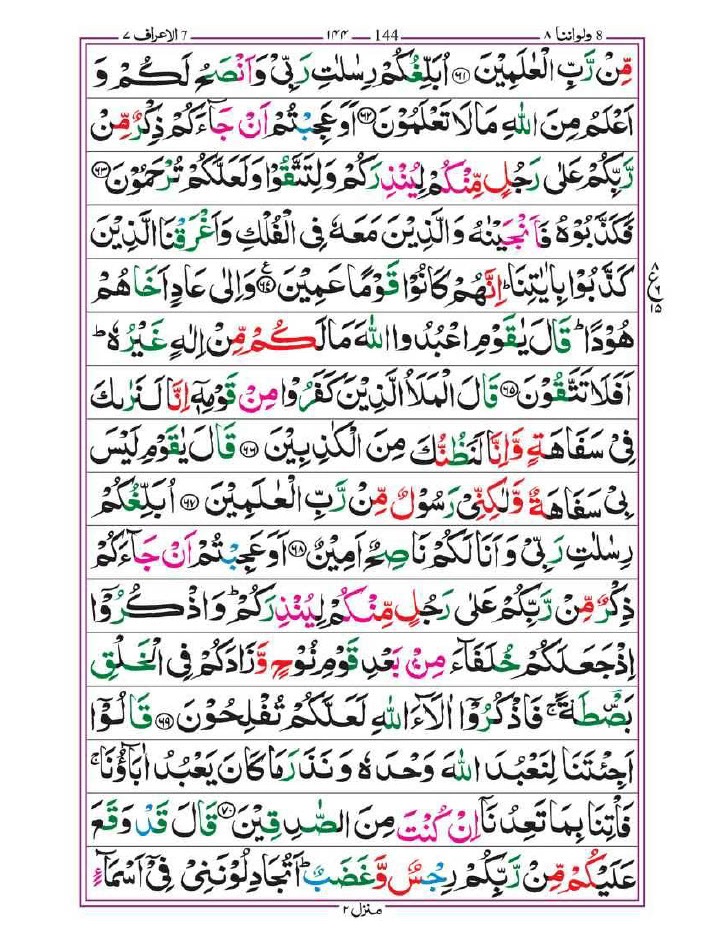 8 ولواننا ٨ — 144 — ١٤٤ — 7 الاعراف ٧
مِّنْ رَّبِّ الْعٰلَمِيْنَ ﴿٦١﴾ اُبَلِّغُكُمْ رِسٰلٰتِ رَبِّيْ وَاَنْصَحُ لَكُمْ وَ
اَعْلَمُ مِنَ اللّٰهِ مَا لَا تَعْلَمُوْنَ ﴿٦٢﴾ اَوَعَجِبْتُمْ اَنْ جَآءَكُمْ ذِكْرٌ مِّنْ
رَّبِّكُمْ عَلٰى رَجُلٍ مِّنْكُمْ لِيُنْذِرَكُمْ وَلِتَتَّقُوْا وَلَعَلَّكُمْ تُرْحَمُوْنَ ﴿٦٣﴾
فَكَذَّبُوْهُ فَاَنْجَيْنٰهُ وَالَّذِيْنَ مَعَهٗ فِى الْفُلْكِ وَاَغْرَقْنَا الَّذِيْنَ
كَذَّبُوْا بِاٰيٰتِنَا ؕ اِنَّهُمْ كَانُوْا قَوْمًا عَمِيْنَ ﴿٦٤﴾ ع وَاِلٰى عَادٍ اَخَاهُمْ
ع ٨ ٦ ١٥
هُوْدًا ؕ قَالَ يٰقَوْمِ اعْبُدُوا اللّٰهَ مَا لَكُمْ مِّنْ اِلٰهٍ غَيْرُهٗ ؕ
اَفَلَا تَتَّقُوْنَ ﴿٦٥﴾ قَالَ الْمَلَاُ الَّذِيْنَ كَفَرُوْا مِنْ قَوْمِهٖٓ اِنَّا لَنَرٰىكَ
فِيْ سَفَاهَةٍ وَّاِنَّا لَنَظُنُّكَ مِنَ الْكٰذِبِيْنَ ﴿٦٦﴾ قَالَ يٰقَوْمِ لَيْسَ
بِيْ سَفَاهَةٌ وَّلٰكِنِّيْ رَسُوْلٌ مِّنْ رَّبِّ الْعٰلَمِيْنَ ﴿٦٧﴾ اُبَلِّغُكُمْ
رِسٰلٰتِ رَبِّيْ وَاَنَا لَكُمْ نَاصِحٌ اَمِيْنٌ ﴿٦٨﴾ اَوَعَجِبْتُمْ اَنْ جَآءَكُمْ
ذِكْرٌ مِّنْ رَّبِّكُمْ عَلٰى رَجُلٍ مِّنْكُمْ لِيُنْذِرَكُمْ ؕ وَاذْكُرُوْٓا
اِذْ جَعَلَكُمْ خُلَفَآءَ مِنْۢ بَعْدِ قَوْمِ نُوْحٍ وَّزَادَكُمْ فِى الْخَلْقِ
بَصْۜطَةً ۚ فَاذْكُرُوْٓا اٰلَآءَ اللّٰهِ لَعَلَّكُمْ تُفْلِحُوْنَ ﴿٦٩﴾ قَالُوْٓا
اَجِئْتَنَا لِنَعْبُدَ اللّٰهَ وَحْدَهٗ وَنَذَرَ مَا كَانَ يَعْبُدُ اٰبَآؤُنَا ۚ
فَاْتِنَا بِمَا تَعِدُنَآ اِنْ كُنْتَ مِنَ الصّٰدِقِيْنَ ﴿٧٠﴾ قَالَ قَدْ وَقَعَ
عَلَيْكُمْ مِّنْ رَّبِّكُمْ رِجْسٌ وَّغَضَبٌ ؕ اَتُجَادِلُوْنَنِيْ فِيْٓ اَسْمَآءٍ
منزل ٢